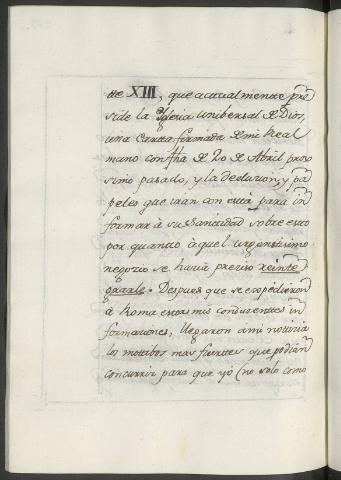 tte XIII, que actualmente pre
side la Iglesia unibersal de Dios,
una Carta firmada de mi Real
mano con fha de 20 de Abril, proxi
simo pasado, y la deducion, y pa
peles que irán con esta para in
formar à su Santidad sobre esto
por quanto àquel urgentisimo
negozio se havia preciso reinte
grarle. Despues que se expedieron
à Roma estas mis conducentes in
formaciones, llegaron à mi noticia
los motibos mas fuertes que podian
concurrir para que yò (no solo como